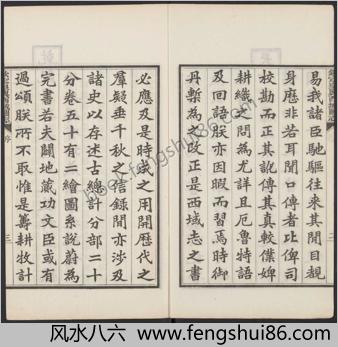 易我諸臣馳驅往来其間目覩
身歷非若耳聞口傳者比俾司
校勘而正其訛傳其真較僕婢
耕織之問為尤詳且厄魯特語
及回語朕亦因暇而習焉時御
丹塹為之改正是西域志之書
必應及是時成之用開歷代之
羣疑垂千秋之信錄間亦涉及
諸史以存述古總計分部二十
分卷五十有二繪圖系說蔚為
完書若夫闢地蕆功文臣或有
過頌朕所不取惟是籌耕牧計
序
三
www.fengshui86.com
风水八六:www.fengshui86.com